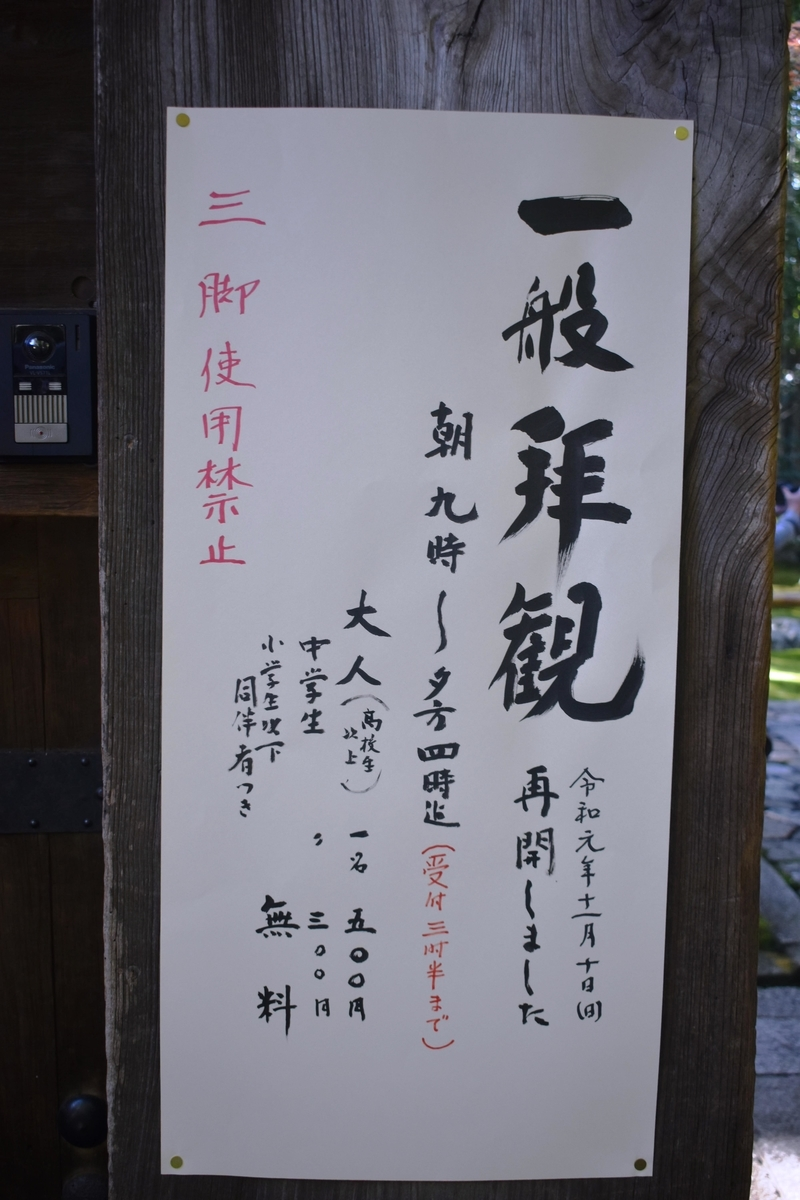 一般拝観
令和元年十一月十日(日)
再開しました
朝九時〜夕方四時迄
(受付三時半まで)
大人(高校生以上)一名 五〇〇円
中学生 〃 三〇〇円
小学生以下
同伴者つき
無料
三脚使用禁止
Panasonic